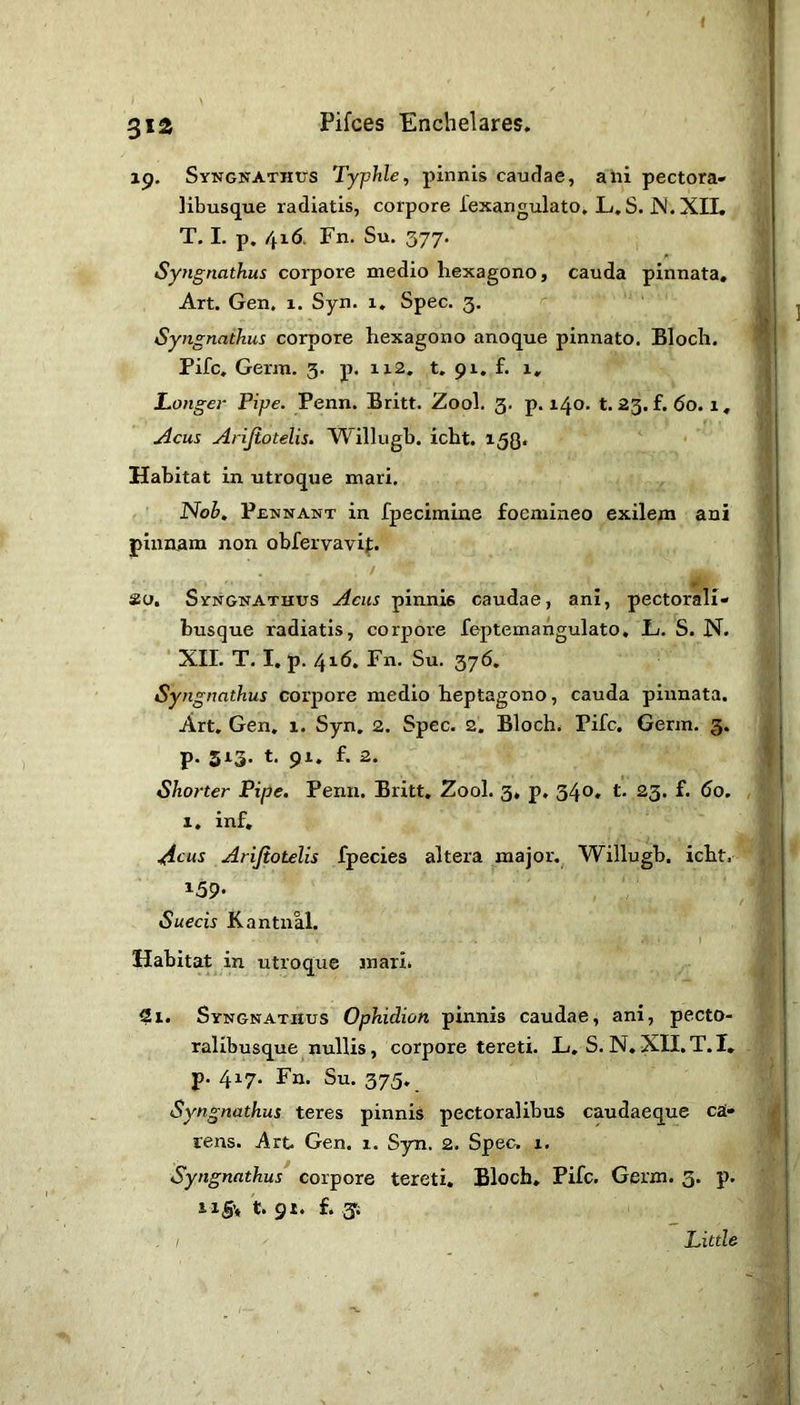 312 Piſces Enchelares.
19. Syngnathus Typhle, pinnis caudae, ani pectora-
libusque radiatis, corpore ſexangulato. L. S. N. XII.
T. I. p. 416. Fn. Su. 377.
Syngnathus corpore medio hexagono, cauda pinnata.
Art. Gen. 1. Syn. 1. Spec. 3.
Syngnathus corpore hexagono anoque pinnato. Bloch.
Piſc. Germ. 3. p. 112. t. 91. f. 1.
Longer Pipe. Penn. Britt. Zool. 3. p. 140. t. 23. f. 60. 1.
Acus Ariſtotelis. Willugb. icht. 158.
Habitat in utroque mari.
Nob. Pennant in ſpecimine foemineo exilem ani
pinnam non obſervavit.
20. Syngnathus Acus pinnis caudae, ani, pectorali-
busque radiatis, corpore ſeptemangulato. L. S. N.
XII. T. I. p. 416. Fn. Su. 376.
Syngnathus corpore medio heptagono, cauda pinnata.
Art. Gen. 1. Syn. 2. Spec. 2. Bloch. Piſc. Germ. 3.
p. 313. t. 91. f. 2.
Shorter Pipe. Penn. Britt. Zool. 3. p. 340. t. 23. f. 60.
1. inf.
Acus Ariſtotelis ſpecies altera major. Willugb. icht.
159.
Suecis Kantnål.
Habitat in utroque mari.
21. Syngnathus Ophidion pinnis caudae, ani, pecto-
ralibusque nullis, corpore tereti. L. S. N. XII. T. I.
p. 417. Fn. Su. 375.
Syngnathus teres pinnis pectoralibus caudaeque ca-
rens. Art. Gen. 1. Syn. 2. Spec. 1.
Syngnathus corpore tereti. Bloch. Piſc. Germ. 3. p.
115. t. 91. f. 3.
Little